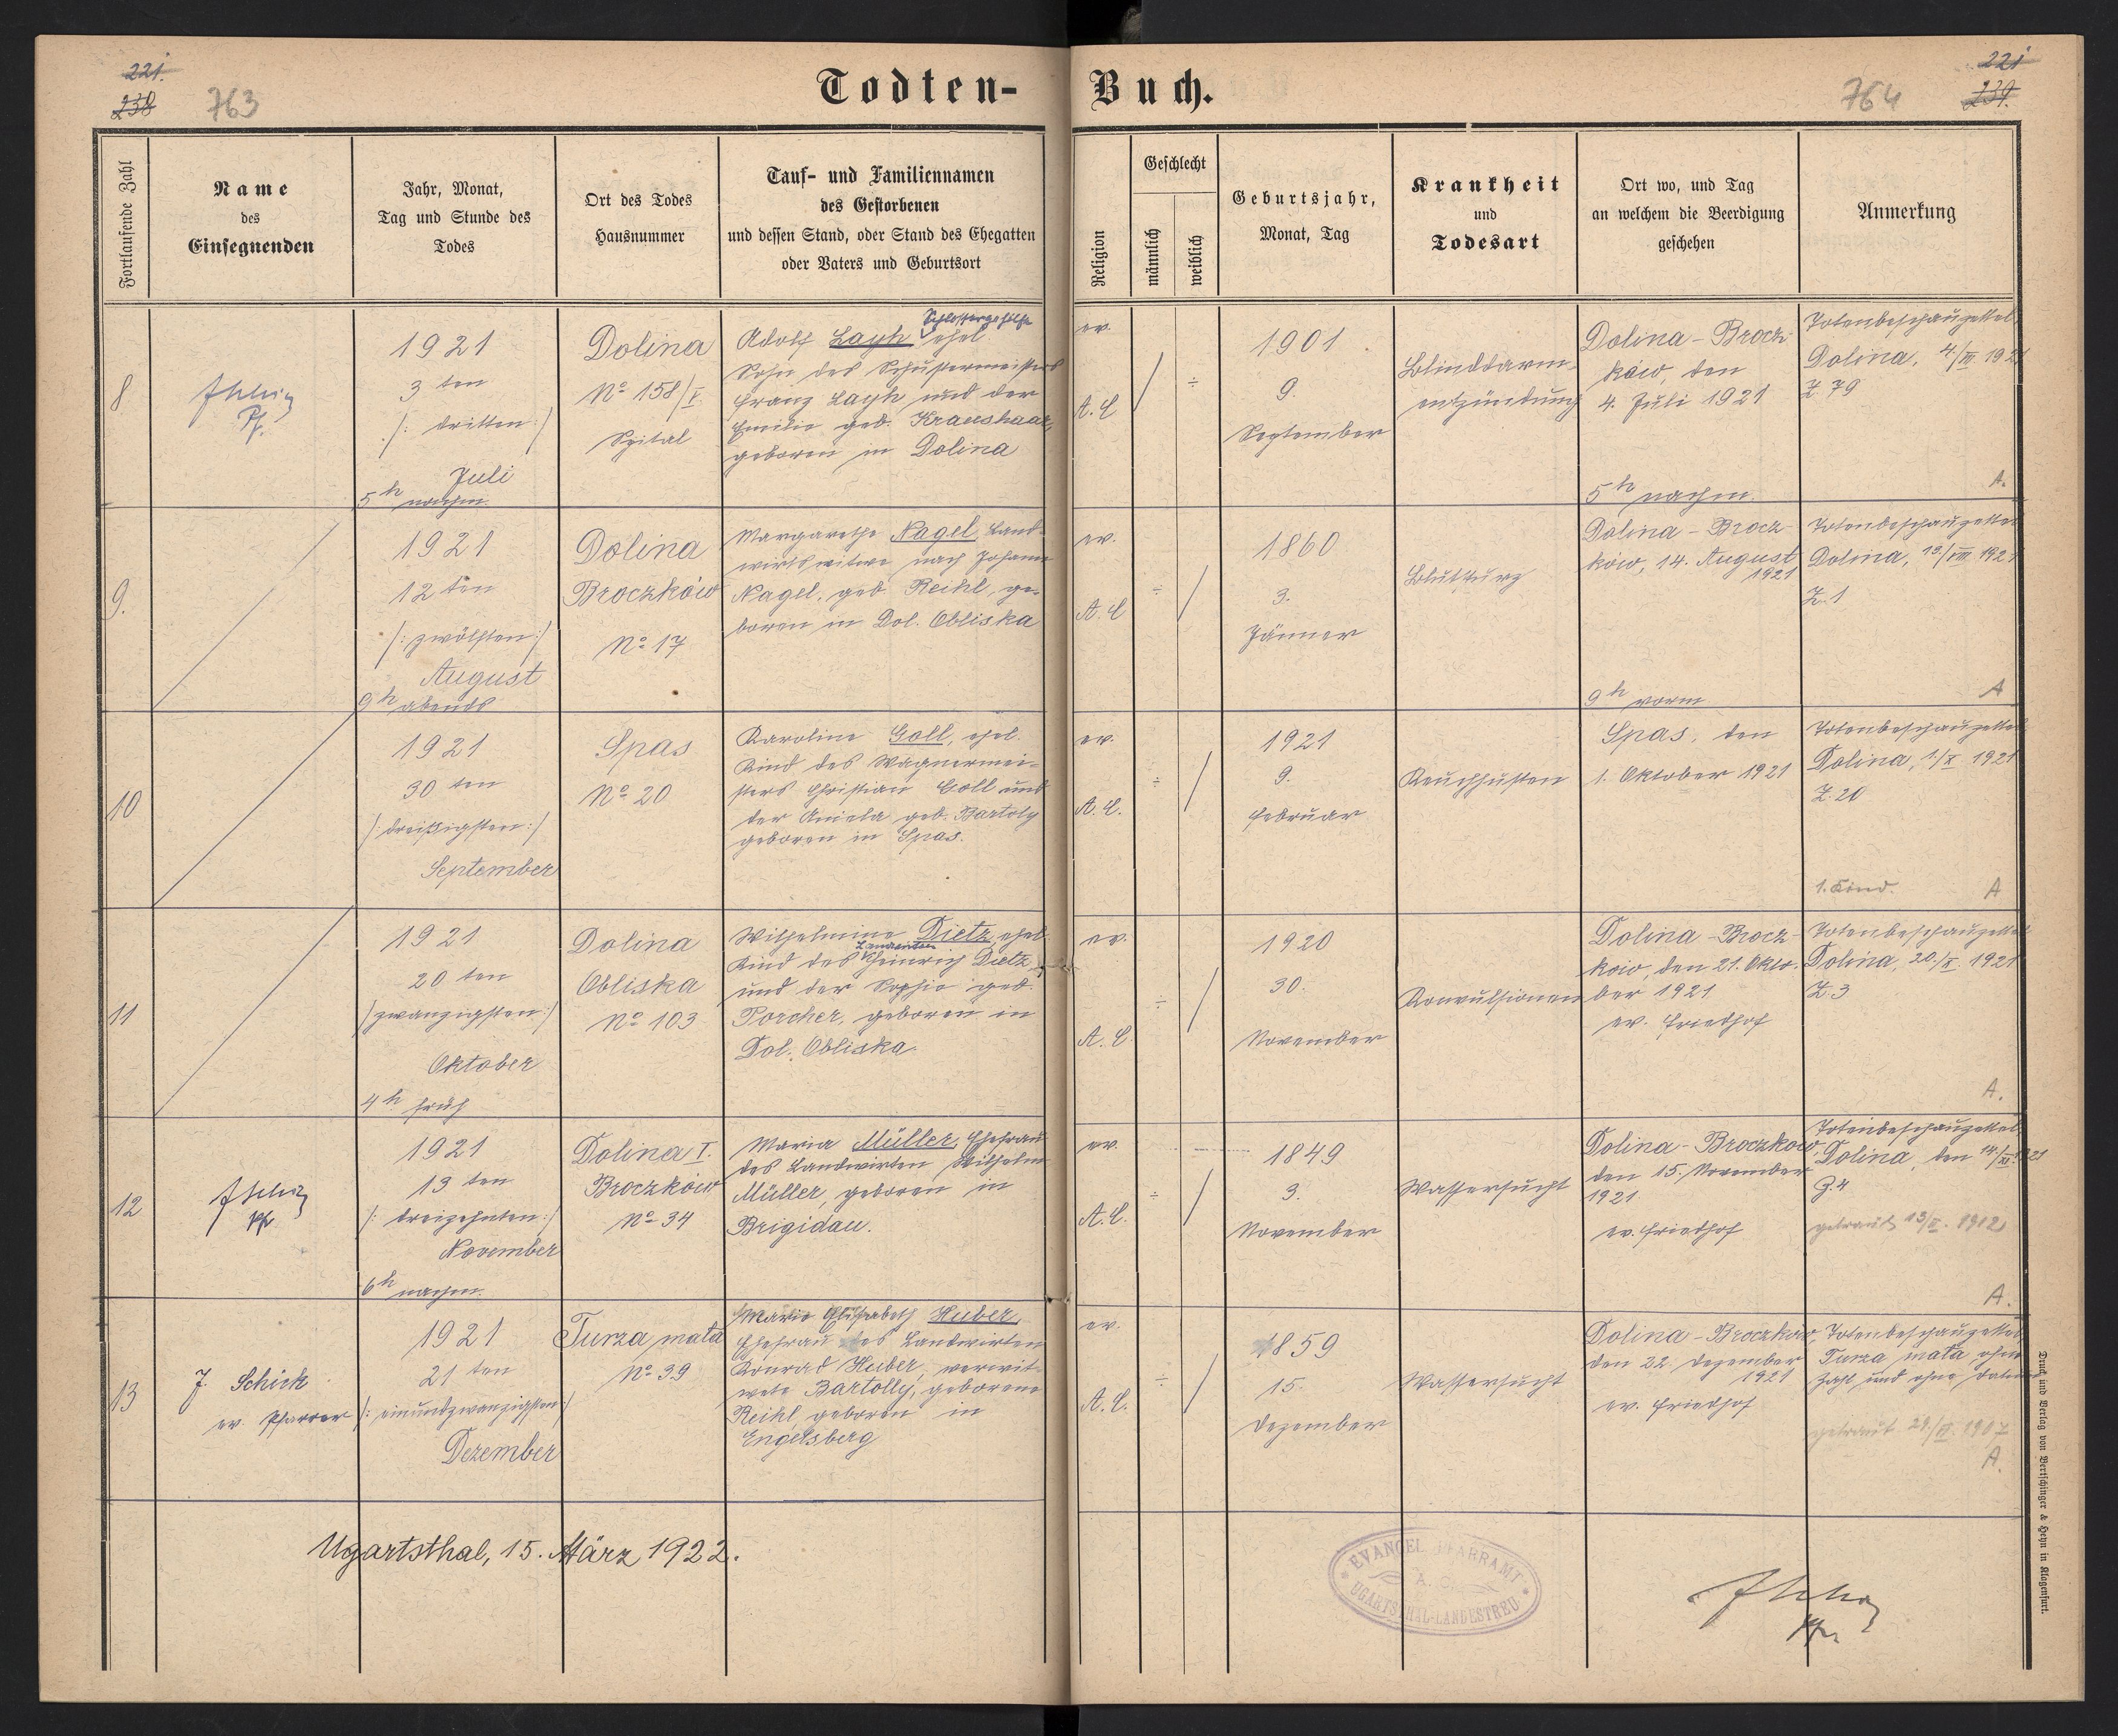 221.
238
763
Todten-
Buch.
764
221
239.
Fortlaufende Zahl
Name
des
Einsegnenden
Jahr, Monat,
Tag und Stunde des
Todes
Ort des Todes
Hausnummer
Tauf- und Familiennamen
des Gestorbenen
und dessen Stand, oder Stand des Ehegatten
oder Vaters und Geburtsort
Religion
Geschlecht
männlich
weiblich
Geburtsjahr,
Monat, Tag
Krankheit
und
Todesart
Ort wo, und Tag
an welchem die Beerdigung
geschehen
Anmerkung
8
Pf.
1921
3 ten
/: dritten :/
Juli
5 h nachm.
Dolina
No 158/I.
Spital
Schlossergehilfe
Adolf Layh ehel
Sohn des Schustermeisters
Franz Layh und der
Emilie geb. Kraushaar,
geboren in Dolina
ev.
A.C
/
÷
1901
9.
September
Blinddarm-
entzündung
Dolina-Brocz-
ków, den
4. Juli 1921
5 h nachm.
Totenbeschauzettel
Dolina, 4./VII. 1921
Z 79
A.
9.
1921
12 ten
/: zwölften :/
August
9 h abends
Dolina
Broczków
No 17
Margarethe Nagel, Land-
wirtswitwe nach Johann
Nagel, geb. Reichl, ge-
boren in Dol. Obliska
ev.
A.C
÷
/
1860
3.
Jänner
Blutsturz
Dolina-Brocz-
ków, 14. August
1921
9 h vorm
Totenbeschauzettel
Dolina, 13./VIII 1921
Z.1
A
10
1921
30 ten
/: dreißigsten :/
September
Spas
No 20
Karoline Goll, ehel.
Kind des Wagnermei-
sters Christian Goll und
der Aniela geb. Bartoly
geboren in Spas.
ev.
A.C.
÷
/
1921
9.
Februar
Keuchhusten
Spas, den
1. Oktober 1921
Totenbeschauzettel
Dolina, 1/X 1921
Z.20
1. Kind.
A
11
1921
20 ten
/: zwanzigsten :/
Oktober
4 h früh
Dolina
Obliska
No 103
Wilhelmine Dietz, ehel.
Landwirten
Kind des Heinrich Dietz
und der Sophie geb.
Porcher, geboren in
Dol. Obliska.
ev.
A.C.
÷
/
1920
30.
November
Konvulsionen
Dolina-Brocz-
ków, den 21. Okto-
ber 1921
ev. Friedhof
Totenbeschauzettel
Dolina, 20./X. 1921
Z.3
A.
12
Pf
1921
13 ten
/: dreizehnten :/
November
6 h nachm.
Dolina I.
Broczków
No 34
Maria Müller, Ehefrau
des Landwirten Wilhelm
Müller, geboren in
Brigidau.
ev.
A.C.
÷
/
1849
3.
November
Wassersucht
Dolina-Broczków,
den 15. November
1921
ev. Friedhof
Totenbeschauzettel
Dolina, den 14./XI. 1921
Z.4
A.
13
J. Schick
ev. Pfarrer
1921
21 ten
/: einundzwanzigsten :/
Dezember
Turza mała
No 39
Marie Elisabeth Huber,
Ehefrau des Landwirten
Konrad Huber, verwit-
wete Bartolly, geborene
Reikl, geboren in
Engelsberg
ev.
A.C.
÷
/
1859
15.
Dezember
Wassersucht
Dolina-Broczków,
den 22. Dezember
1921
ev. Friedhof
Totenbeschauzettel
Turza mała ohne
Zahl und ohne Datum
A.
Ugartsthal, 15. März 1922.
EVANGEL. PFARRAMT
A. C.
UGARTSTHAL-LANDESTREU
Druck und Verlag von Bertschinger & Heyn in Klagenfurt.